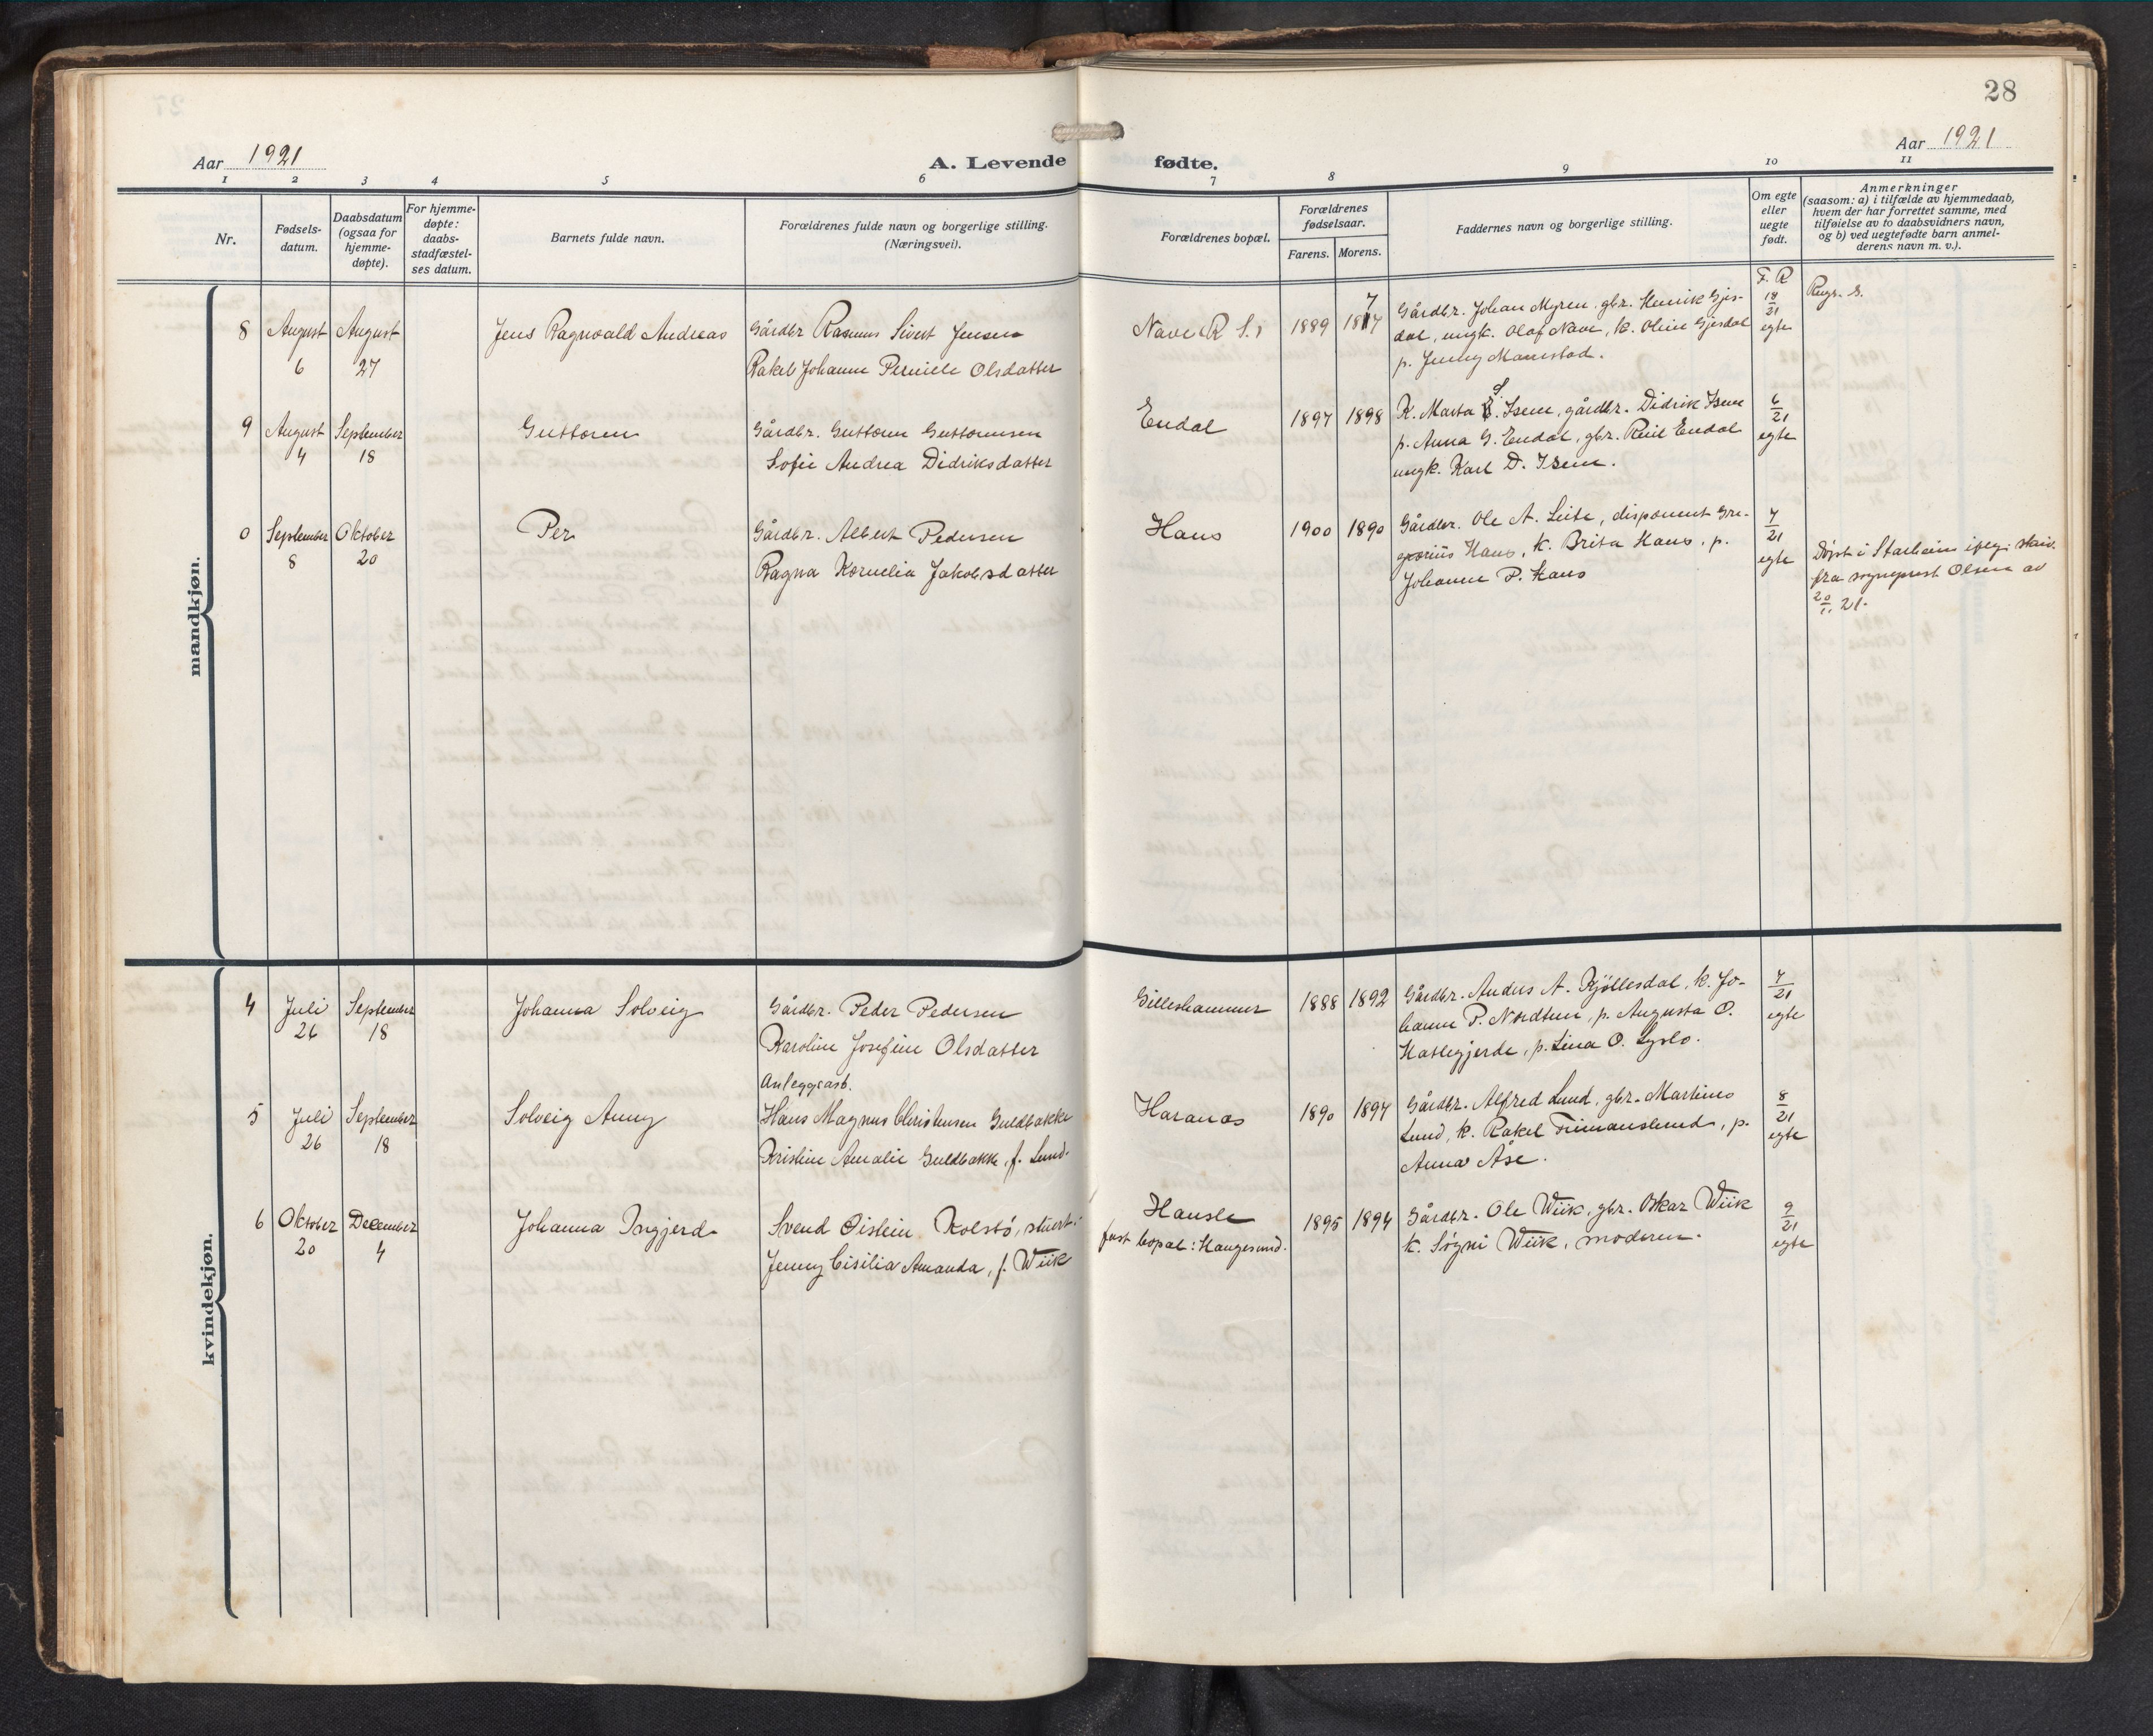 28
Aar 1921
A. Levende fødte.
Aar 1921
1 2 3 4 5 6 7 8 9 10 11
Nr.
Fødsels-
datum.
Daabsdatum
(ogsaa for
hjemme-
døpte).
For hjemme-
døpte:
daabs-
stadfæstel-
ses datum.
Barnets fulde navn.
Forældrenes fulde navn og borgerlige stilling.
(Næringsvei).
Forældrenes bopæl.
Forældrenes
fødselsaar.
Farens. Morens.
Faddernes navn og borgerlige stilling.
Om egte
eller
uegte
født.
Anmerkninger
(saasom: a) i tilfælde av hjemmedaab,
hvem der har forrettet samme, med
tilføielse av to daabsvidners navn,
og b) ved uegtefødte barn anmel-
derens navn m. v.).
mandkjøn.
8
August
6
August
27
Jens Ragnvald Andreas
Gårdbr. Rasmus Sivert Jensen
Rakel Johanne Perniele Olsdatter
Nave R. S.
1889
Gårdbr. Johan Myren, gbr. Henrik Gjes-
dal, ungk. Olaf Nave, k. Oline Gjesdal
p. Jenny Maurstad.
F. R
18
21
egte
9
August
4
September
18
Guttorm
Gårdbr. Guttorm Guttormsen
Sofie Andrea Didriksdatter
Endal
1897
1898
K. Marta S. Isene, gårdbr. Didrik Isene
p. Anna G. Endal, gbr. Endal
ungk. Karl D. Isene.
6
21
egte
0
September
8
Oktober
20
Per
Gårdbr. Albert Pedersen
Ragna Kornelia Jakobsdatter
Haus
1900
1890
Gårdbr. Ole A. Leite, disponent Gre-
gorius Haus, k. Brita Haus, p.
Johanne P. Haus
7
21
egte
Døpt i Starheim ifølg. skriv.
fra sogneprest Olsen av
20
11 21.
kvindekjøn.
4
Juli
26
September
18
Johanna Solveig
Gårdbr. Peder Pedersen
Karoline Josefine Olsdatter
Gilleshammer
1888
1892
Gårdbr. Anders A. Kjøllesdal, k. Jo-
hanne P. Nordtun, p. Augusta O.
Hatlegjerde, p. Lina O. Lyslo.
7
21
egte
5
Juli
26
September
18
Solveig Anny
Anleggsarb.
Hans Magnus Christensen Guldbakke
Kristine Amalie Guldbakke, f. Lund.
Haranes
1890
1897
Gårdbr. Alfred Lund, gbr. Martinus
Lund, k. Rakel Fiimanslund, p.
Anna Åse.
8
21
egte
6
Oktober
20
December
4
Johanna Ingjerd
Svend Oistein Kolstø, stuert.
Jenny Cisilia Amanda, f. Wiik
Hausle
fast bopæl: Haugesund.
1895
1894
Gårdbr. Ole Wiik, gbr. Oskar Wiik
k. Søgni Wiik, moderen.
9
21
egte